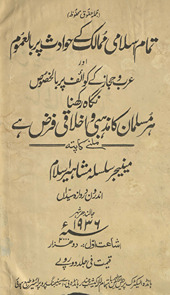 (جملہ حقوق محفوظ)
تمام اسلامی ممالک کے حوادث پر بالعموم
اور
عرب و حجاز کے کوائف پر بالخصوص
نگاہ رکھنا
ہر مسلمان کا مذہبی و اخلاقی فرض ہے
ملنے کا پتہ
مینیجر سلسلہ مشاہیر اسلام
اندرون دروازہ
جالندھر شہر
۱۹۳۶ء
اشاعت اول دو ہزار
قیمت فی جلد دو روپے